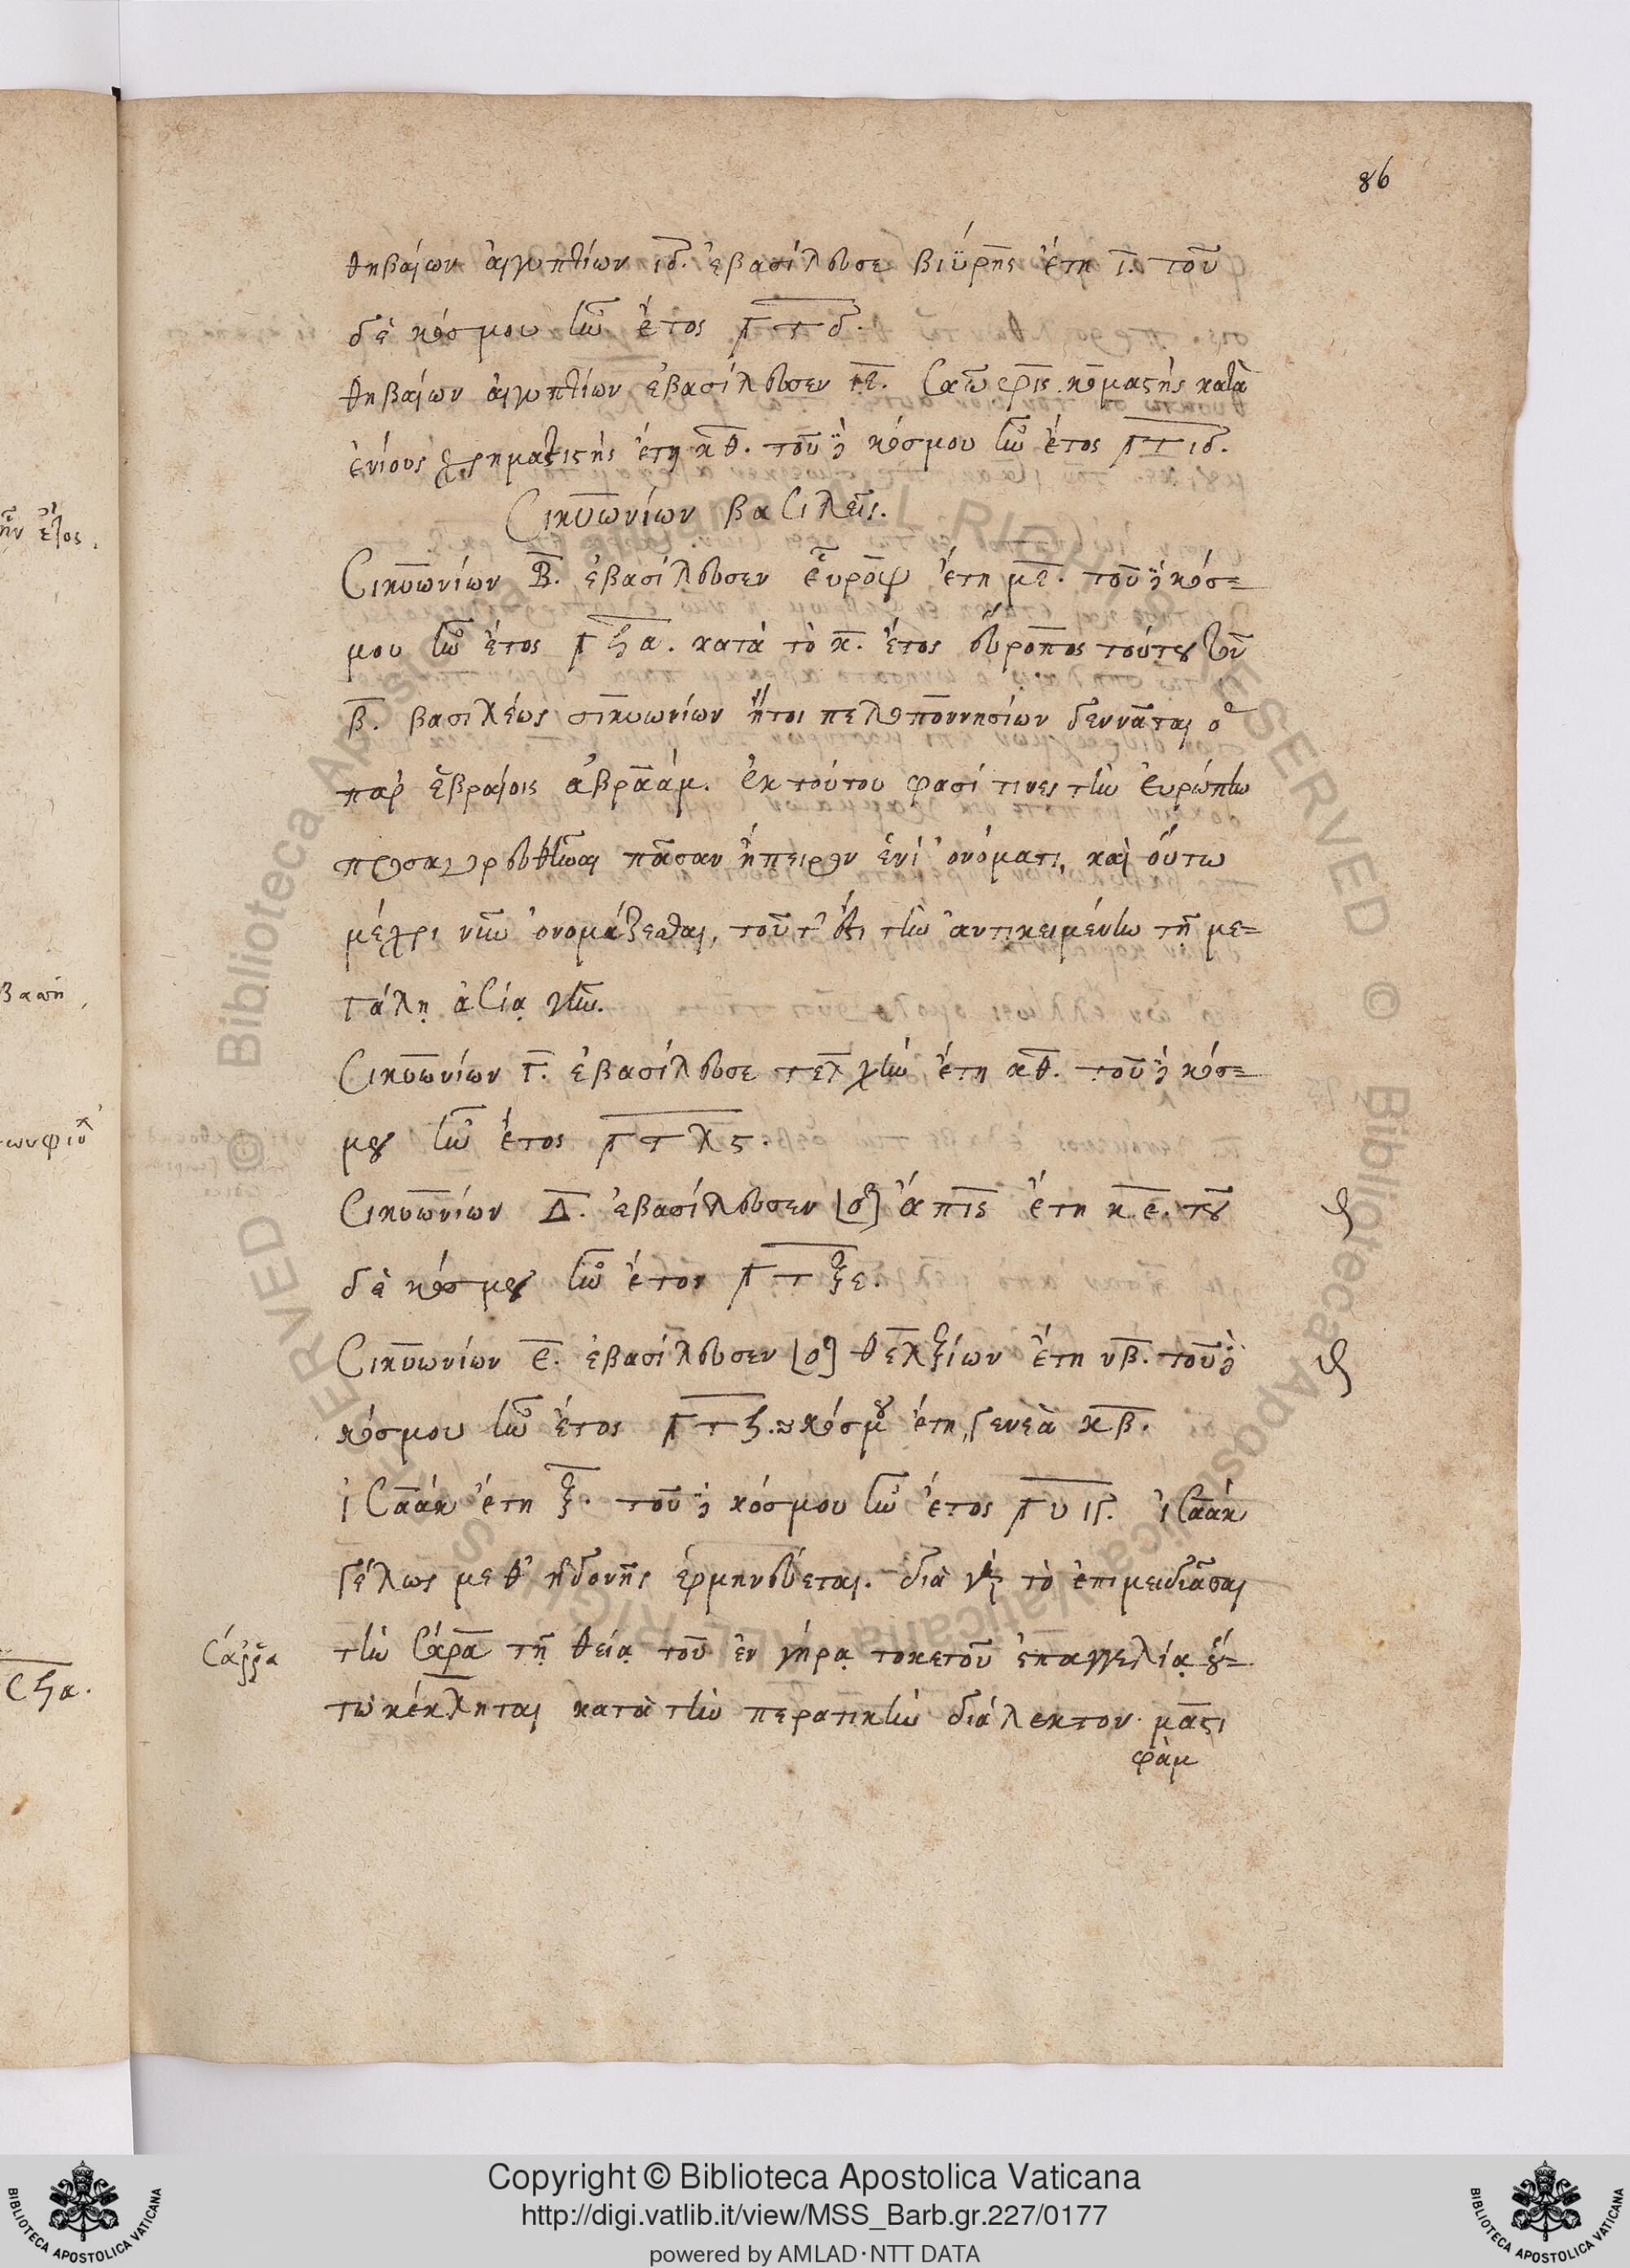 86
θηβαίων αἰγυπτίων ιδ. ἐβασίλευσε βιϋρης ἔτη ι. τοῦ
δὲ κόσμου ἦν ἔτος γτδ.
θηβαίων αἰγυπτίων ἐβασίλευσεν ιε. Σαῶφις κομαστὴς κατὰ
ἐνίους χρηματιστὴς ἔτη κθ. τοῦ δὲ κόσμου ἦν ἔτος γτιδ.
Σικυωνίων βασιλεῖς.
Σικυωνίων Β. ἐβασίλευσεν εὖροψ ἔτη με. τοῦ δὲ κόσ=
μου ἦν ἔτος γϟα. κατὰ τὸ κ. ἔτος εὔροπος τούτου τοῦ
β. βασιλέως σικυωνίων ἤτοι πελοποννησίων γεννᾶται ὁ
παρ' ἑβραίοις ἀβραάμ. ἐκ τούτου φασί τινες τὴν εὐρώπην
προσαγορευθῆναι πᾶσαν ἤπειρον ἑνὶ ὀνόματι, καὶ οὕτω
μέχρι νῦν ὀνομάζεσθαι, τοῦτ' ἔστι τὴν ἀντικειμένην τῇ με=
γάλῃ ἀσίᾳ γῆν.
Σικυωνίων Γ. ἐβασίλευσε τελχὴν ἔτη κθ. τοῦ δὲ κόσ=
μου ἦν ἔτος γτλς.
Σικυωνίων Δ. ἐβασίλευσεν [ὁ] ἄπις ἔτη κε. τοῦ
δὲ κόσμου ἦν ἔτος γτξε.
Σικυωνίων ε. ἐβασίλευσεν [ὁ] θελξίων ἔτη νβ. τοῦ δὲ
κόσμου ἦν ἔτος γτϟ. κόσμου ἔτη, γενεὰ κβ.
ἰσαὰκ ἔτη ξ. τοῦ δὲ κόσμου ἦν ἔτος γυιγ. ἰσαὰκ
γέλως μεθ' ἡδονῆς ἑρμηνεύεται. διὰ γὰρ τὸ ἐπιμειδιᾶσαι
Σάῤῥα
τὴν Σάρα τῇ θείᾳ τοῦ ἐν γήρᾳ τοκετοῦ ἐπαγγελίᾳ οὕ=
τω κέκληται κατὰ τὴν περατικὴν διάλεκτον. μαστι
φὰμ
Copyright © Biblioteca Apostolica Vaticana
http://digi.vatlib.it/view/MSS_Barb.gr.227/0177
powered by AMLAD·NTT DATA